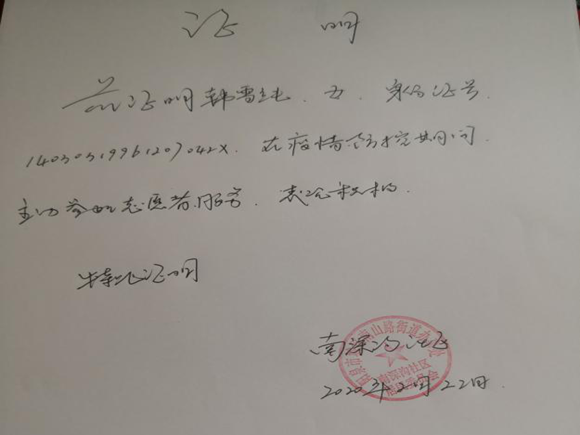 证 明
兹证明韩雪 女、身份证号
14030319961207042X. 在疫情防控期间
主动参加志愿者服务、表现积极.
特此证明
南深沟社区
2020年2月22日.
山路街道办
南深沟社区